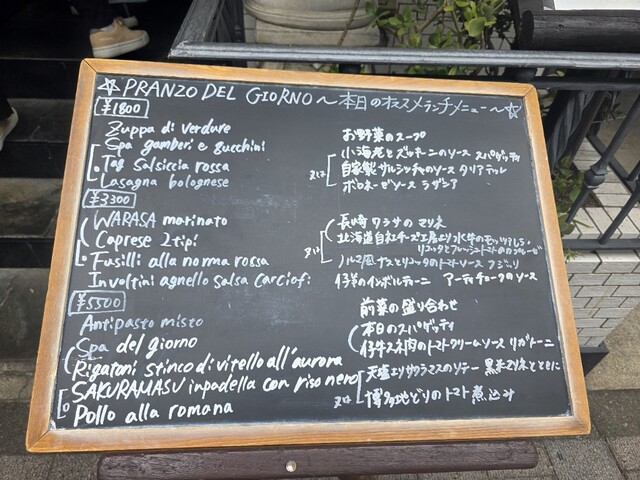 ☆PRANZO DEL GIORNO～本日のオススメランチメニュー～☆
¥1800
Zuppa di verdure お野菜のスープ
Spa gamberi e zucchini 小海老とズッキーニのソース スパゲッティ
Tag Salsiccia rossa 自家製サルシッチャのソース タリアテッレ
Lasagna bolognese ボロネーゼソース ラザニア
¥3300
WARASA marinato 長崎ワラサのマリネ
Caprese 2tipi 北海道自社チーズ工房より水牛のモッツァレラ
リコッタとフレッシュトマトのカプレーゼ
Fusilli alla norma rossa ノルマ風ナスとリコッタのトマトソース フジッリ
Involtini agnello salsa Carciofi 仔羊のインボルティーニ アーティチョークのソース
¥5500
Antipasto misto 前菜の盛り合わせ
Spa del giorno 本日のスパゲッティ
Rigatoni stinco di vitello all'aurora 仔牛スネ肉のトマトクリームソース リガトーニ
SAKURAMASU inpadella con riso nero 天塩よりサクラマスのソテー 黒米マリネとともに
Pollo alla romana 博多地どりのトマト煮込み